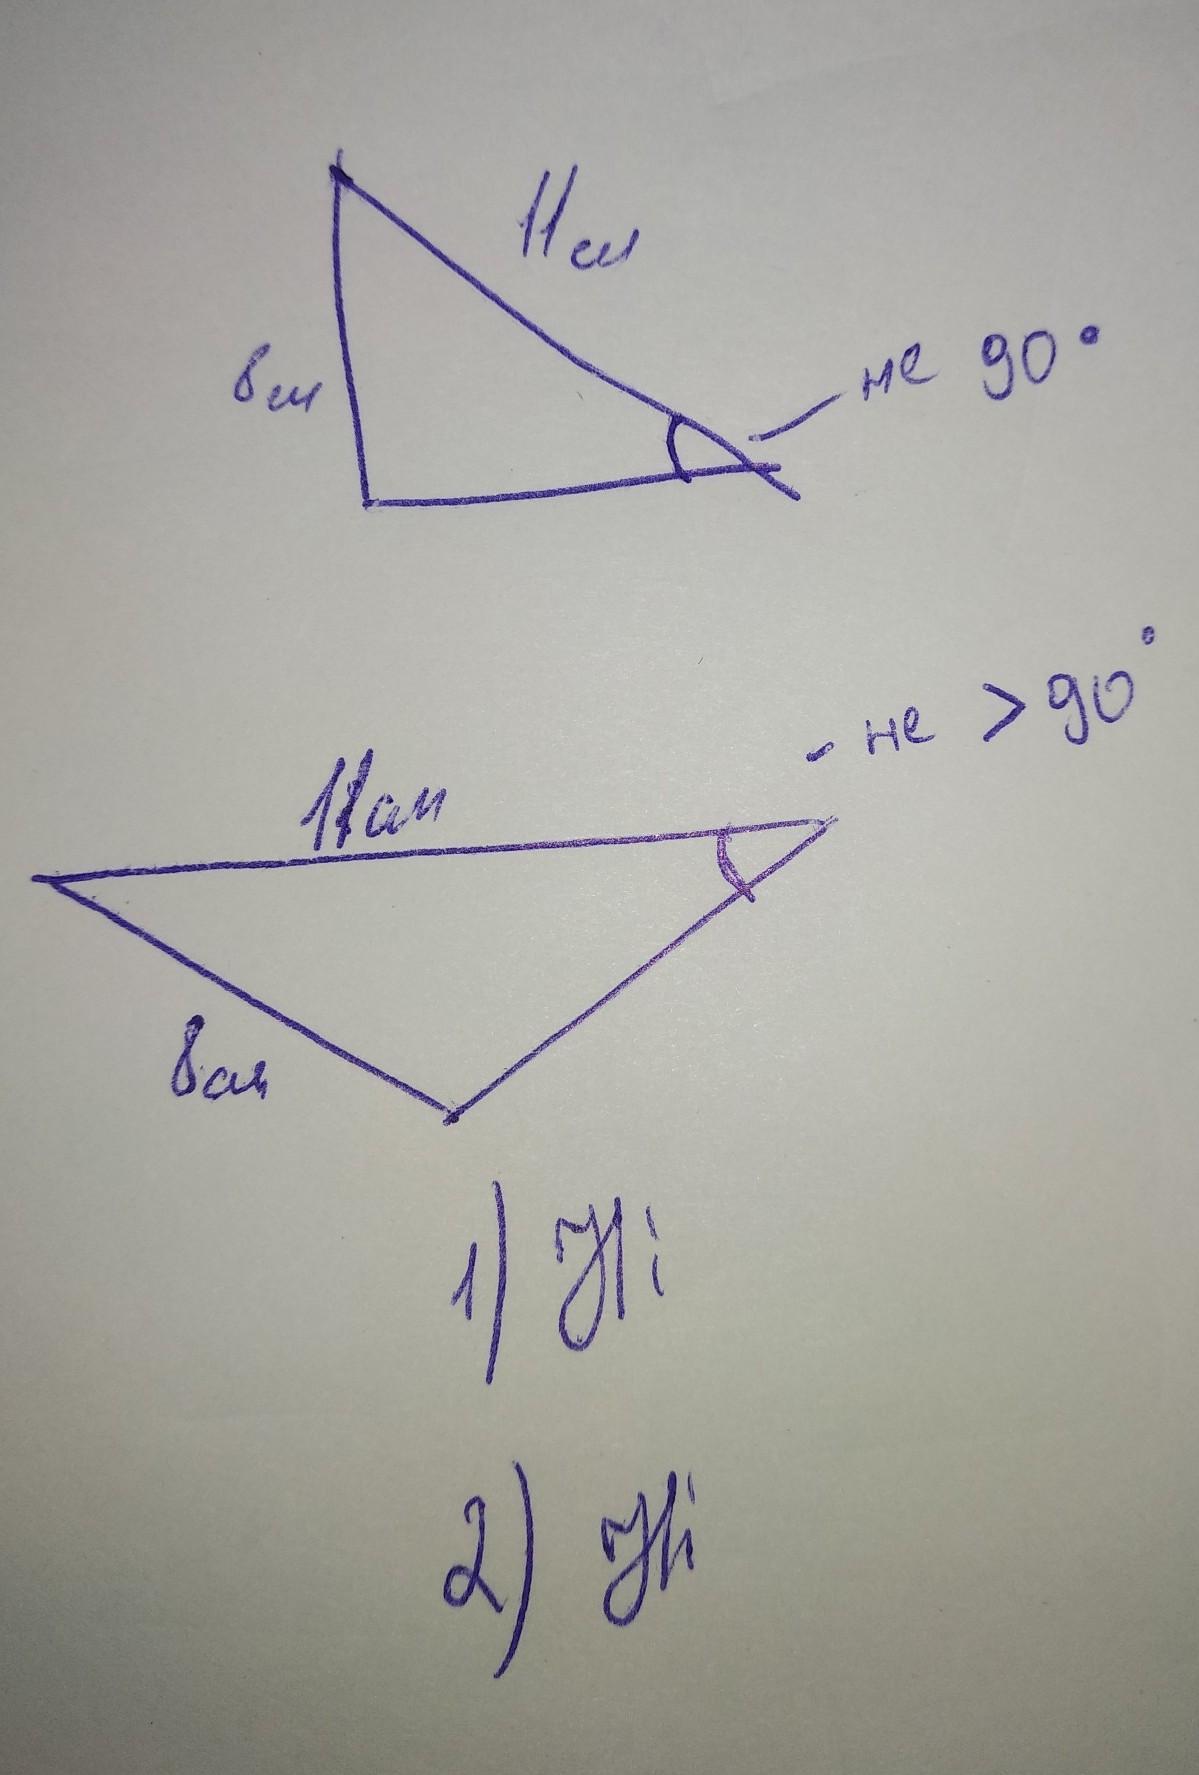 11см
8см
не 90°
- не > 90°
11см
8см
1) Ні
2) Ні